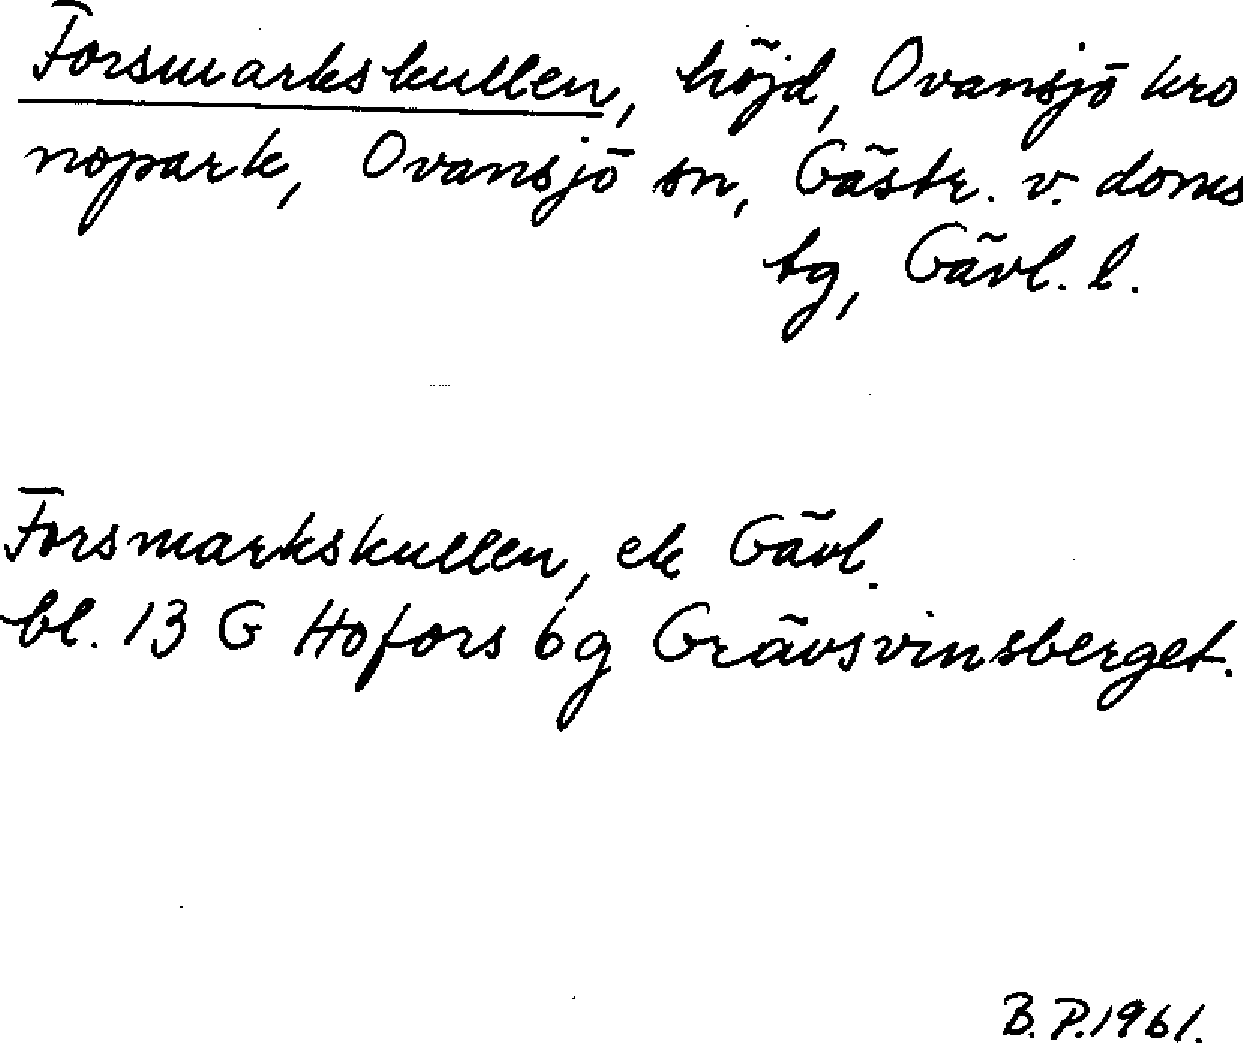 Forsmarkskullen, höjd, Ovansjö kro
nopark, Ovansjö sn, Gästr. v. doms
tg, Gävl. l.
Forsmarkskullen, ek Gävl.
bl. 13 G Hofors 6g Grävsvinsberget.
B. P. 1961.